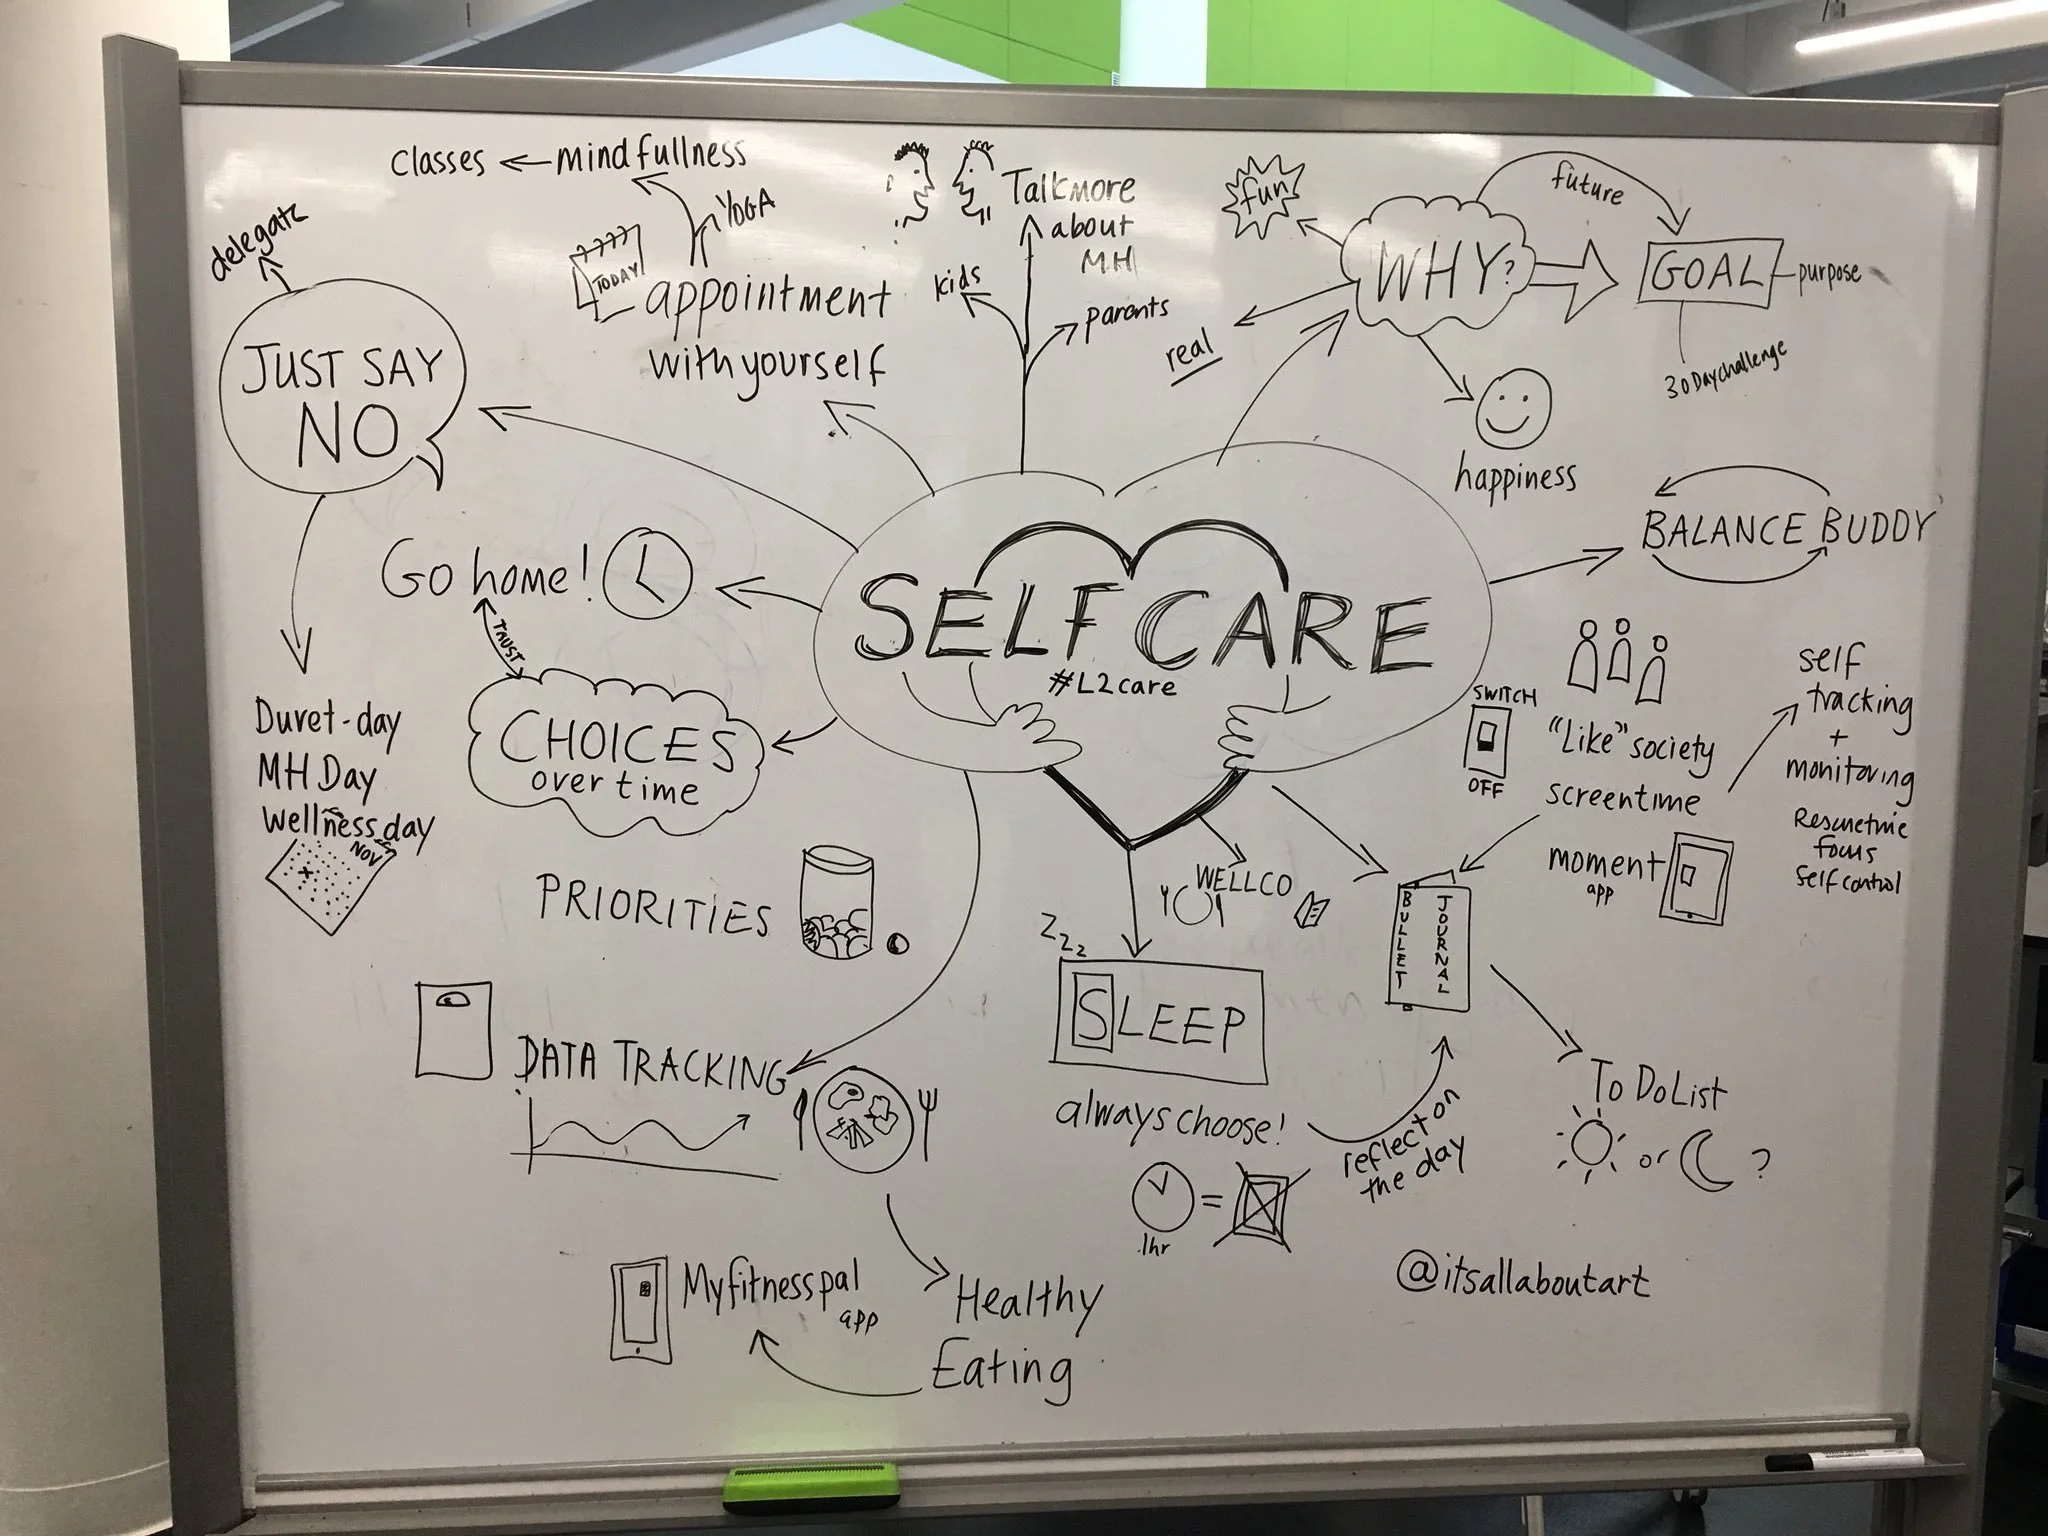 classes
mindfullness
YOGA
TODAY
appointment
with yourself
Talk more
about
MH
kids
parents
delegate
JUST SAY
NO
Duvet-day
MH Day
Wellness day
NOV
Go home!
TRUST
CHOICES
over time
PRIORITIES
fun
WHY?
future
GOAL
purpose
30 Day challenge
real
happiness
BALANCE BUDDY
SELF CARE
#L2care
SWITCH
OFF
"Like" society
screentime
self
tracking
+
monitoring
Focus
Self control
moment
app
WELLCO
BULLET
JOURNAL
Zzz
SLEEP
always choose!
1hr
=
reflect on
the day
To Do List
or
?
DATA TRACKING
Myfitnesspal
app
Healthy
Eating
@itsallaboutart